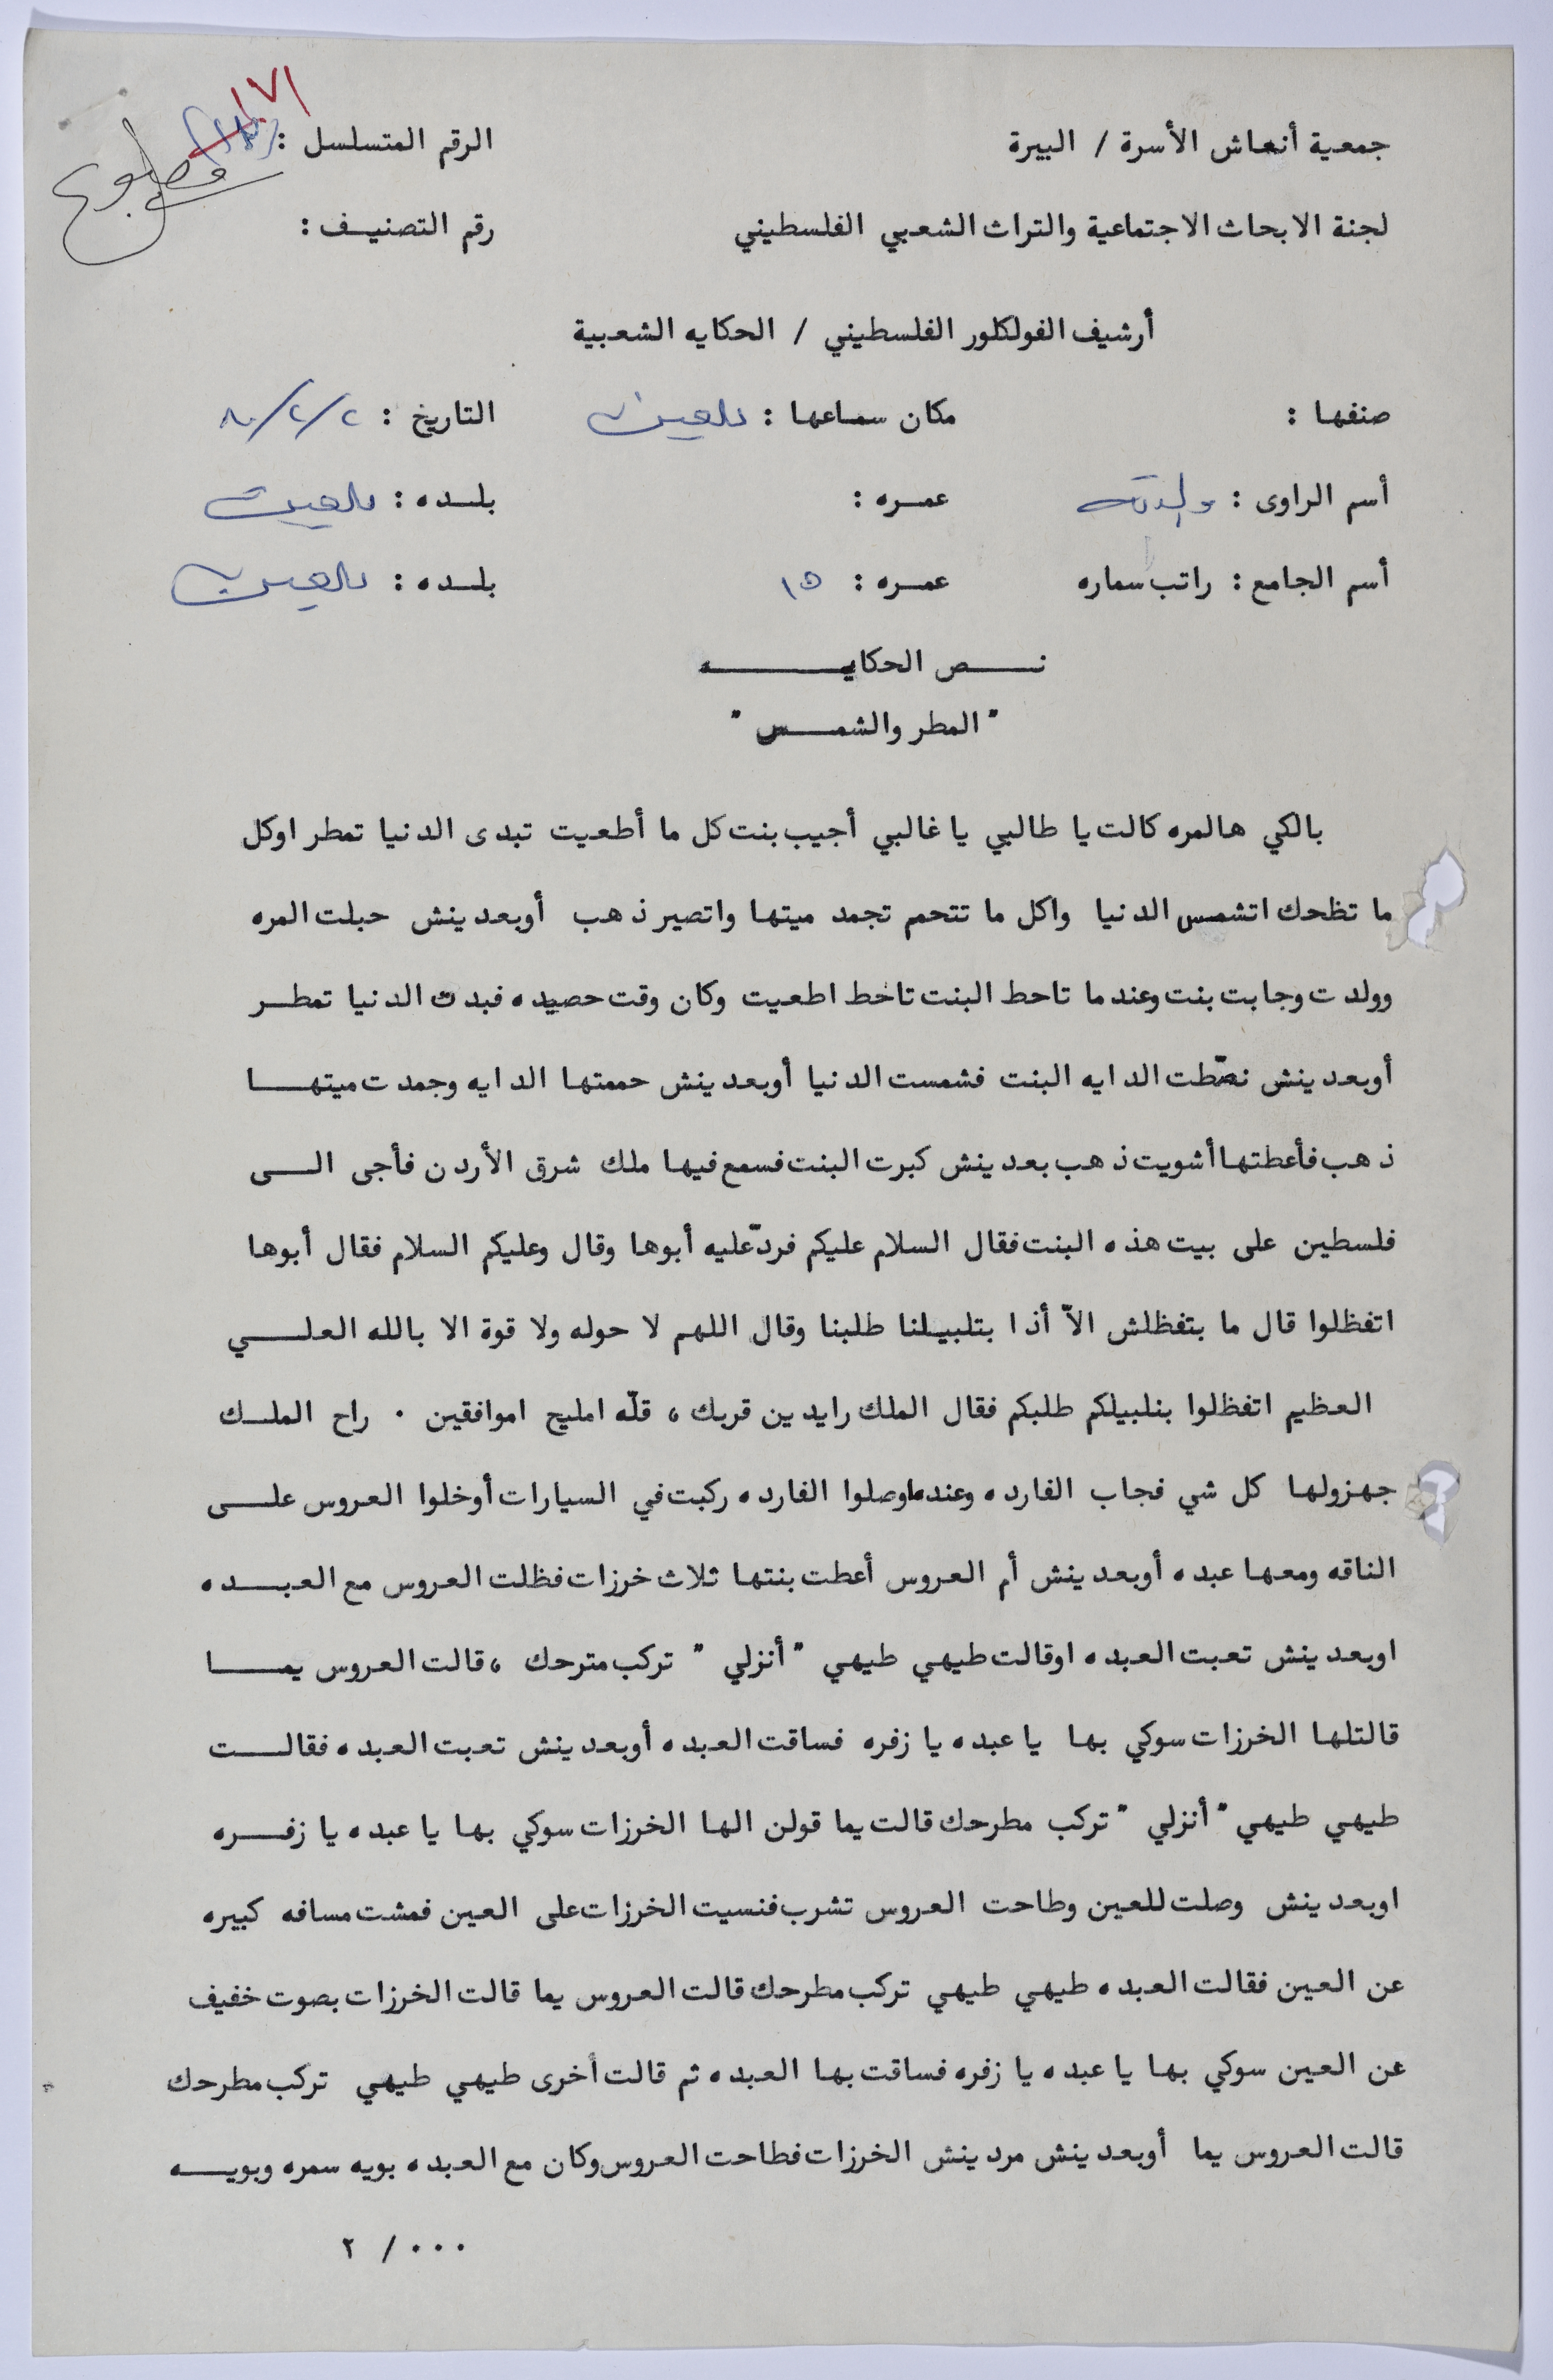 جمعية أنعاش الأسرة / البيرة
الرقم المتسلسل : ١٧١
مطبوع
لجنة الابحاث الاجتماعية والتراث الشعبي الفلسطيني
رقم التصنيف :
أرشيف الفولكلور الفلسطيني / الحكايه الشعبية
صنفها :
مكان سماعها :
التاريخ : ٢/٢/٨٠
أسم الراوى : والدته
عمره :
بلده :
أسم الجامع : راتب سماره
عمره : ١٥
بلده :
نص الحكايه
" المطر والشمس "
بالكي هالمره كالت يا طالبي يا غالبي أجيب بنت كل ما أطعيت تبدى الدنيا تمطر اوكل
ما تظحك اتشمس الدنيا واكل ما تتحمم تجمد ميتها واتصير ذهب أوبعدينش حبلت المره
وولدت وجابت بنت وعندما تاحط البنت تاخط اطعيت وكان وقت حصيده فبدت الدنيا تمطر
أوبعدينش نصّطت الدايه البنت فشمست الدنيا أوبعدينش حممتها الدايه وجمدت ميتها
ذهب فأعطتها أشويت ذهب بعدينش كبرت البنت فسمع فيها ملك شرق الأردن فأجى الى
فلسطين على بيت هذه البنت فقال السلام عليكم فردّ عليه أبوها وقال وعليكم السلام فقال أبوها
اتفظلوا قال ما بتفظلش الاّ أذا بتلبيلنا طلبنا وقال اللهم لا حوله ولا قوة الا بالله العلي
العظيم اتفظلوا بنلبيلكم طلبكم فقال الملك رايدين قربك ، قلّه امليح اموافقين . راح الملك
جهزولها كل شي فجاب الفارده وعندما وصلوا الفارده ركبت في السيارات أوخلوا العروس على
الناقه ومعها عبده أوبعدينش أم العروس أعطت بنتها ثلاث خرزات فظلت العروس مع العبده
اوبعدينش تعبت العبده اوقالت طيهي طيهي " أنزلي " تركب مترحك ، قالت العروس يما
قالتلها الخرزات سوكي بها يا عبده يا زفره فساقت العبده أوبعدينش تعبت العبده فقالت
طيهي طيهي " أنزلي " تركب مطرحك قالت يما قولن الها الخرزات سوكي بها يا عبده يا زفره
اوبعدينش وصلت للعين وطاحت العروس تشرب فنسيت الخرزات على العين فمشت مسافه كبيره
عن العين فقالت العبده طيهي طيهي تركب مطرحك قالت العروس يما قالت الخرزات بصوت خفيف
عن العين سوكي بها يا عبده يا زفره فساقت بها العبده ثم قالت أخرى طيهي طيهي تركب مطرحك
قالت العروس يما أوبعدينش مردينش الخرزات فطاحت العروس وكان مع العبده بويه سمره وبويه
٠٠٠ / ٢